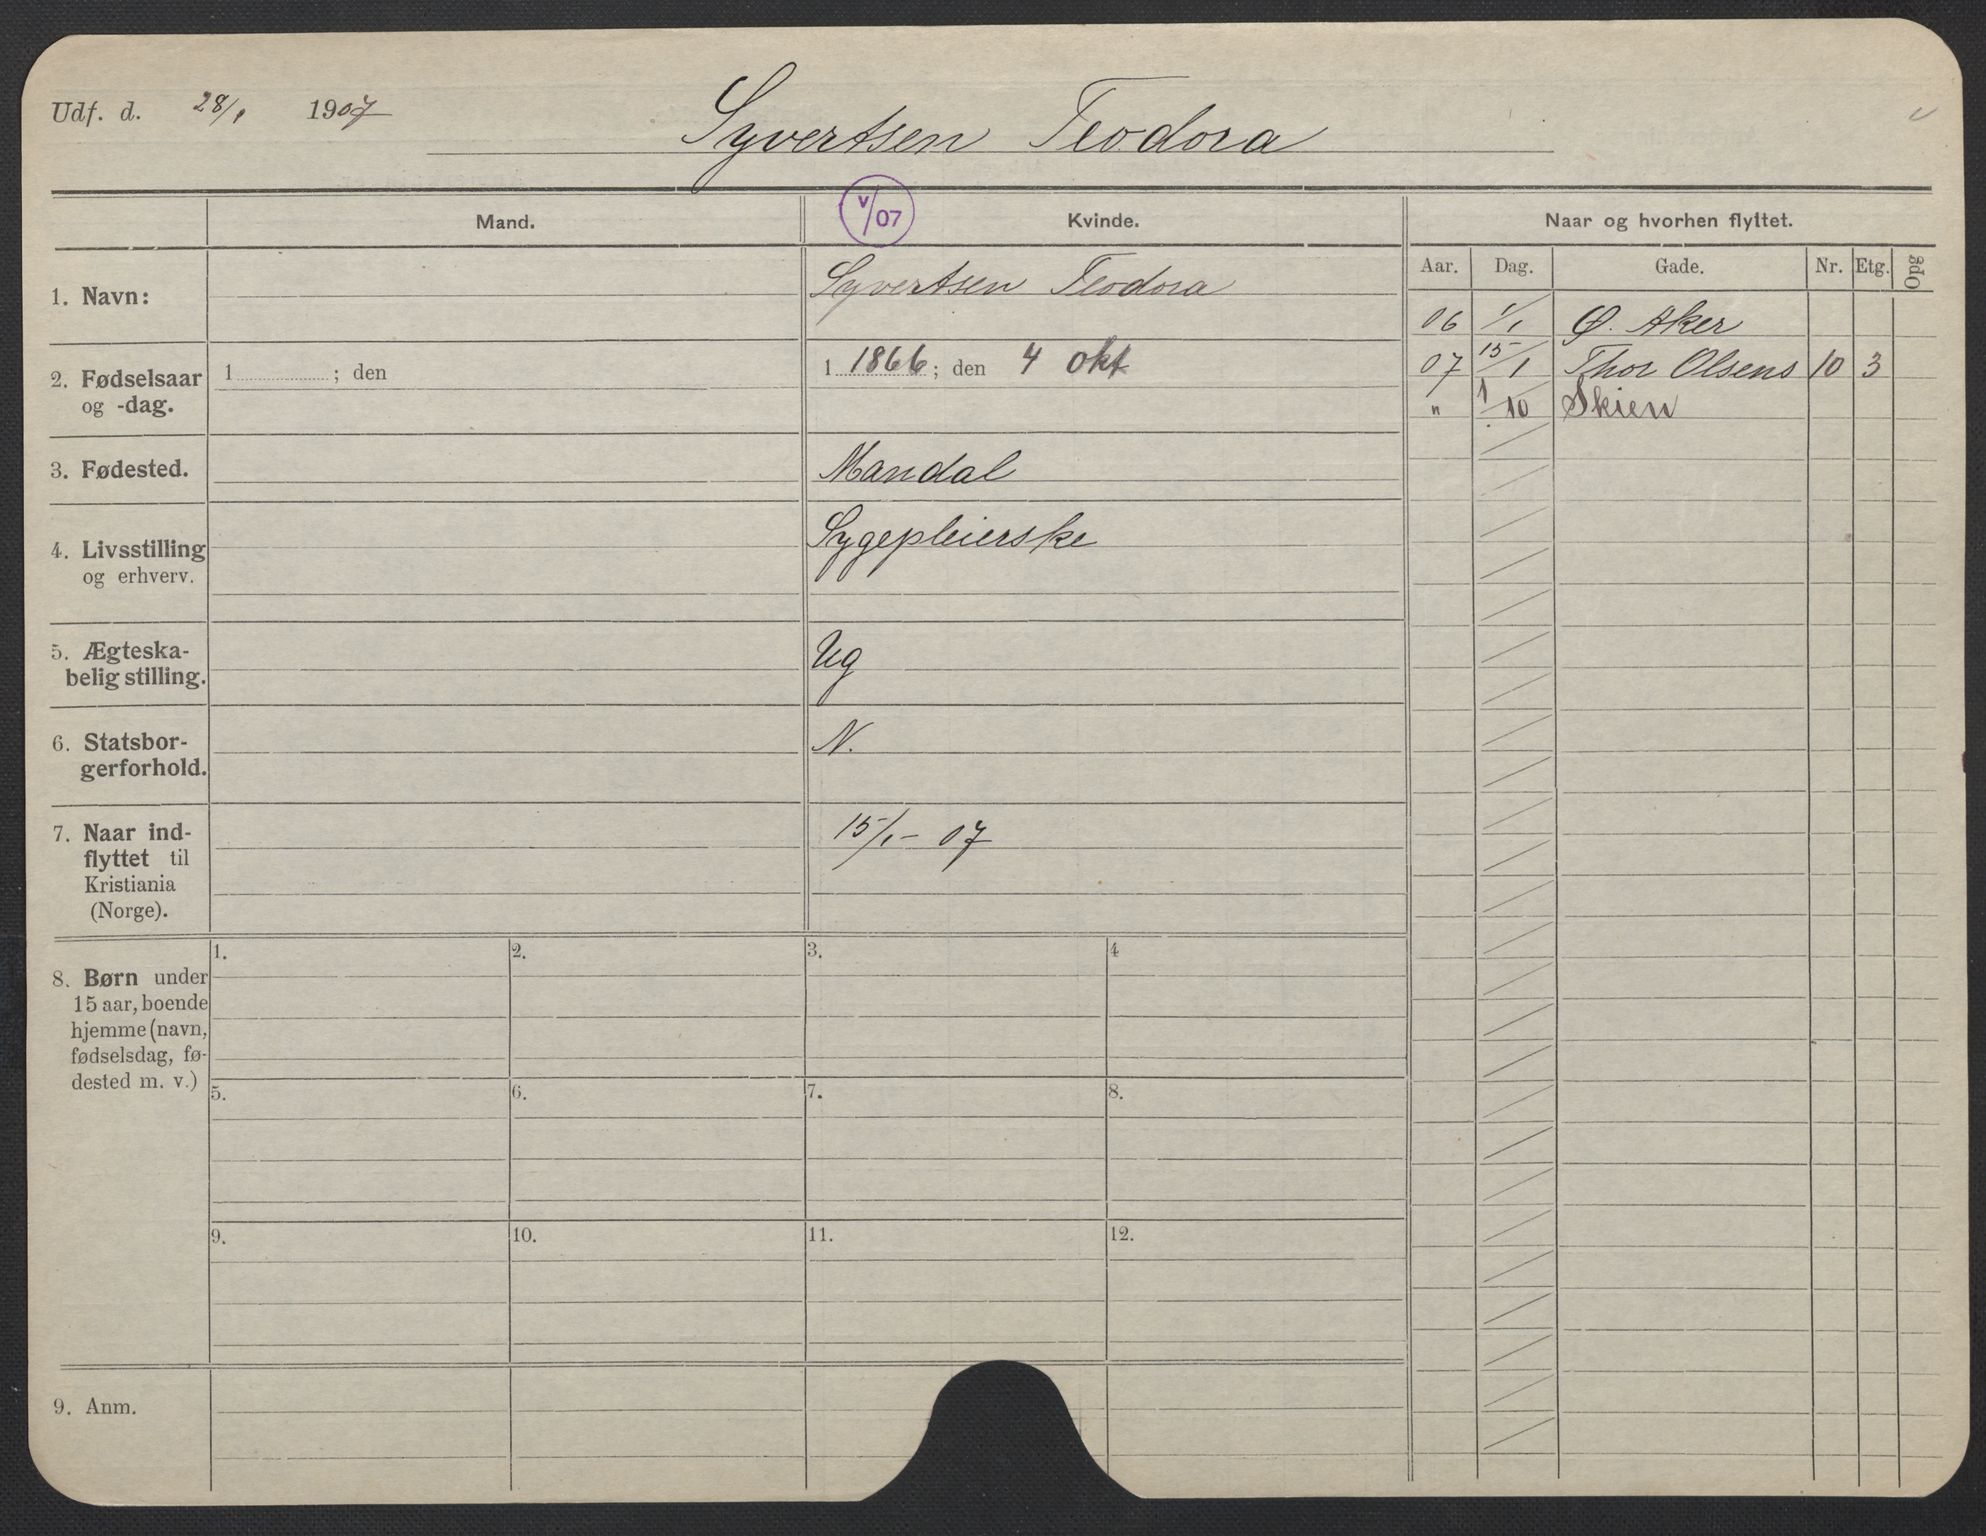 Udf. d. 28/1 1907
Syvertsen Teodora
Mand.
V/07
Kvinde.
Naar og hvorhen flyttet.
Aar. Dag. Gade. Nr. Etg. Opg
1. Navn:
Syvertsen Teodora
2. Fødselsaar
og -dag.
1 ; den
1 1866; den 4 okt
3. Fødested.
Mandal
4. Livsstilling
og erhverv.
Sygepleierske
5. Ægteska-
belig stilling.
Ug
6. Statsbor-
gerforhold.
N.
7. Naar ind-
flyttet til
Kristiania
(Norge).
15/1- 07
06 1/1 Ø. Aker
07 15/1 Thor Olsens 10 3
" 1/10 Skien
8. Børn under
15 aar, boende
hjemme (navn,
fødselsdag, fø-
dested m. v.)
1. 2. 3. 4
5. 6. 7. 8.
9. 10. 11. 12.
9. Anm.